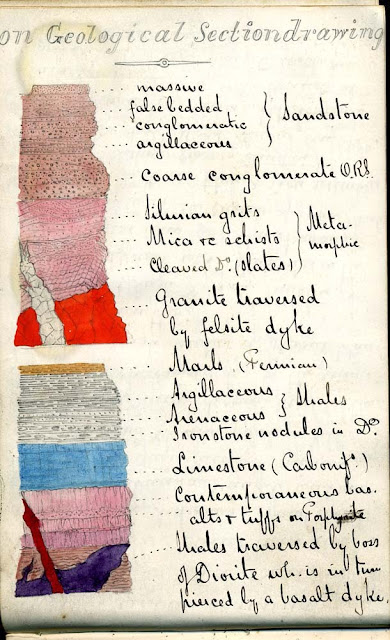 on Geological Sectiondrawing
massive
falsebedded
conglomeratic
argillaceous
Sandstone
coarse conglomerate O.R.S.
Silurian grits
Mica &c schists
Cleaved Do. (slates)
Metamorphic
Granite traversed
by felsite dyke
Marls (Permian)
Argillaceous
Arenaceous
Shales
Ironstone nodules in Do.
Limestone (Carbonifs.)
Contemporaneous bas-
alts & tuffs or Porphyrite
Shales traversed by boss
of Diorite wh. is in turn
pierced by a basalt dyke.